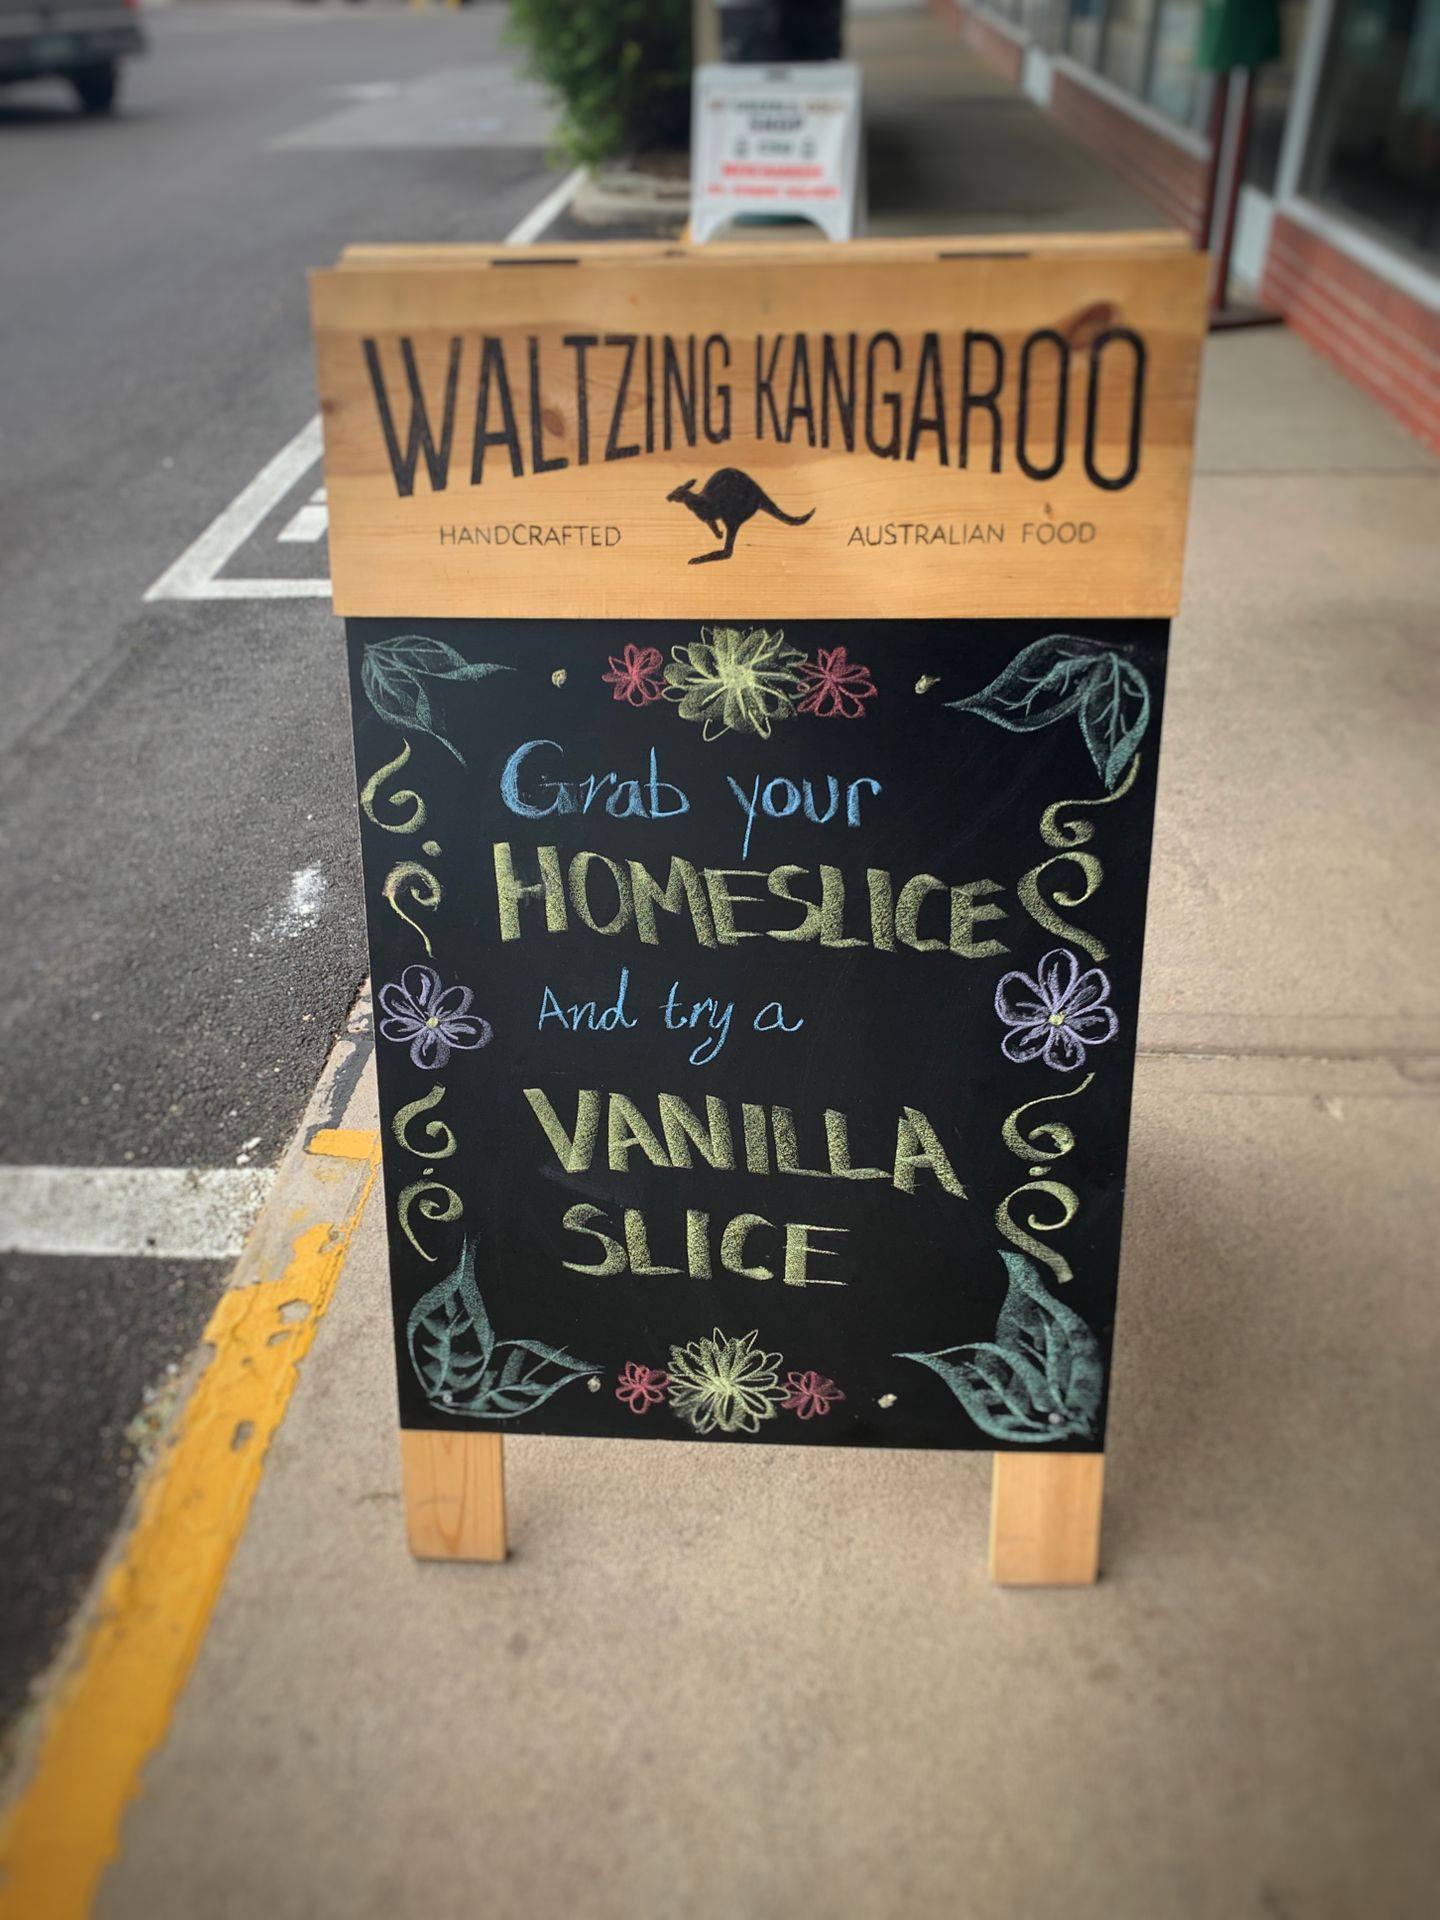 SHOP
WALTZING KANGAROO
HANDCRAFTED AUSTRALIAN FOOD
Grab your
HOMESLICE
And try a
VANILLA
SLICE